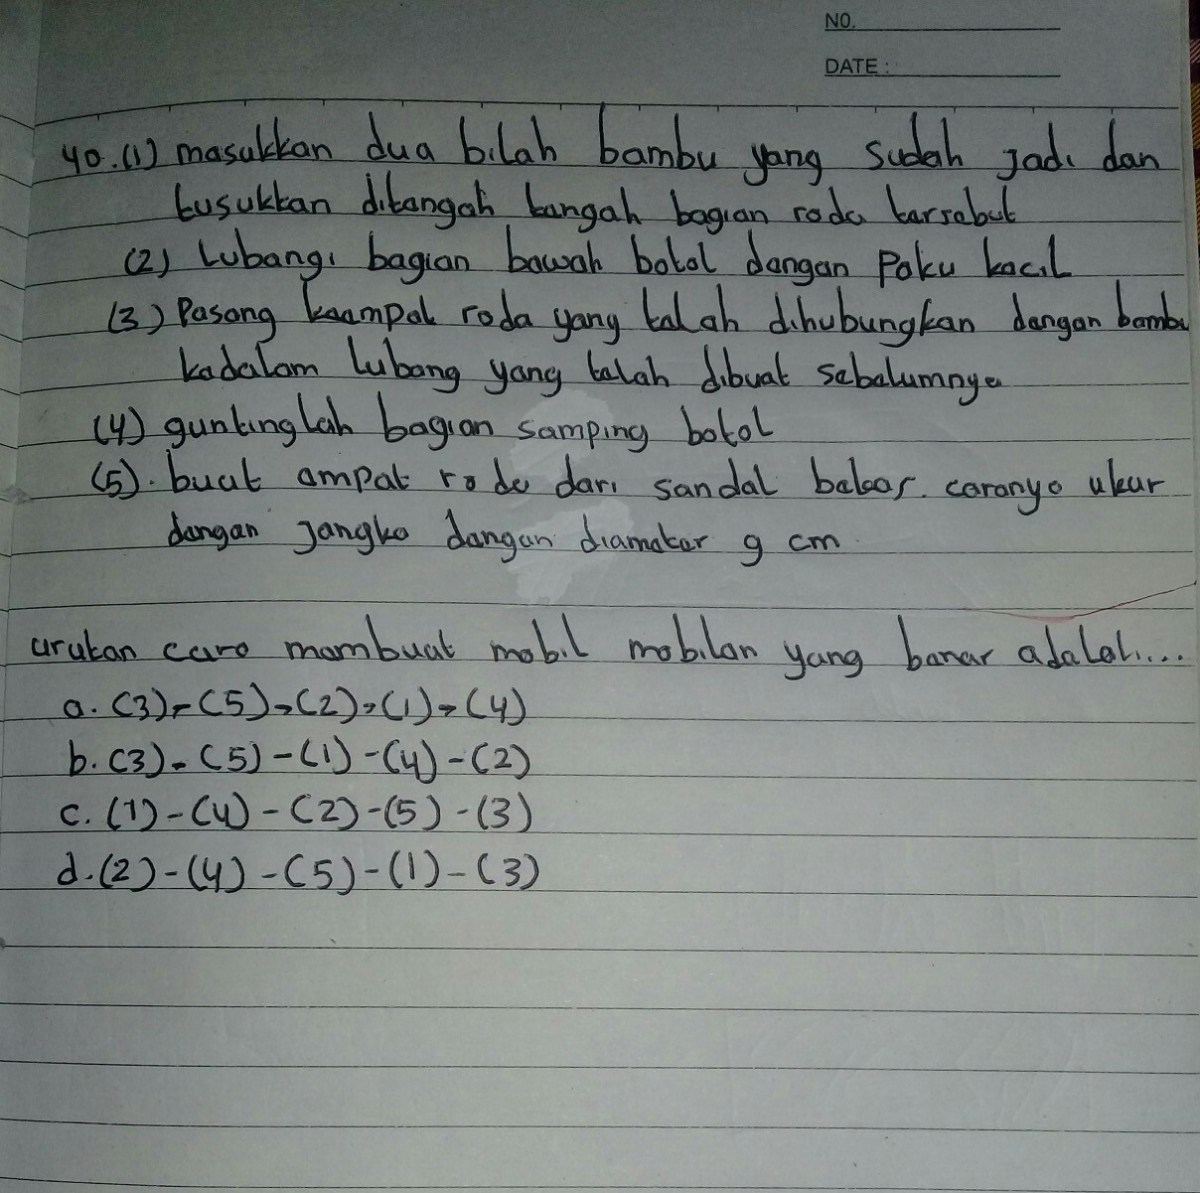 NO.
DATE :
40. (1) masukkan dua bilah bambu yang sudah jadi dan
tusukkan ditangah tangah bagian roda tarsabut
(2) Lubangi bagian bawah botol dangan Paku kacil
(3) Pasang kaampat roda yang talah dihubungkan dangan bambu
kadalam lubang yang talah dibuat sabalumnya
(4) guntinglah bagian samping botol
(5). buat ampat roda dari sandal babas. caranya ukur
dangan jangka dangan diamatar 9 cm
urutan cara mambuat mobil mobilan yang banar adalah....
a. (3)-(5)-(2)-(1)-(4)
b. (3)-(5)-(1)-(4)-(2)
c. (1)-(4)-(2)-(5)-(3)
d. (2)-(4)-(5)-(1)-(3)